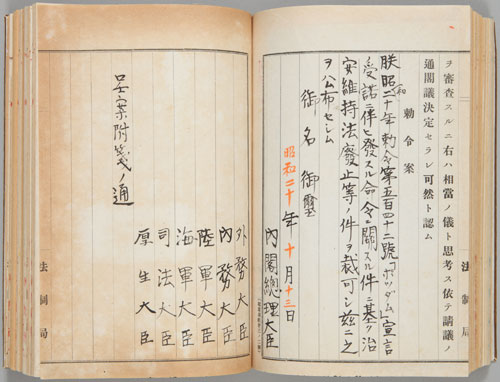 ヲ審査スルニ右ハ相當ノ儀ト思考ス依テ請議ノ
通閣議決定セラレ可然ト認ム
勅令案
朕昭和二十年勅令第五百四十二號「ポツダム」宣言
受諾ニ伴ヒ發スル命令ニ關スル件ニ基ク治
安維持法廢止等ノ件ヲ裁可シ玆ニ之
ヲ公布セシム
御名御璽
昭和二十年十月十三日
内閣總理大臣
法制局
外務大臣
内務大臣
陸軍大臣
海軍大臣
司法大臣
厚生大臣
呈案附箋ノ通
法制局